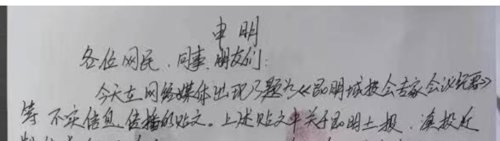 申明
各位网民、同事朋友们:
今天在网络媒体出现了题为《昆明城投会专家会议纪要》
等不实信息传播的贴文。上述贴文中关于昆明土投、滇投近